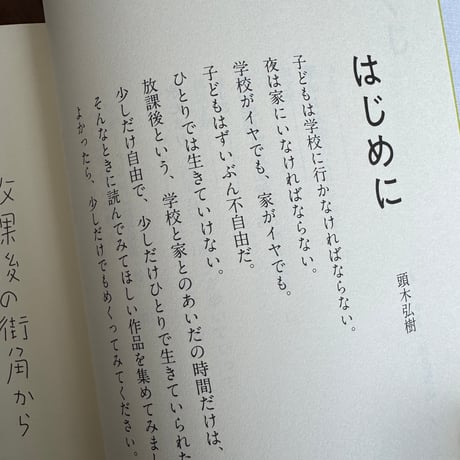 はじめに
頭木弘樹
子どもは学校に行かなければならない。
夜は家にいなければならない。
学校がイヤでも、家がイヤでも。
子どもはずいぶん不自由だ。
ひとりでは生きていけない。
放課後という、学校と家とのあいだの時間だけは、
少しだけ自由で、少しだけひとりで生きていられた
そんなときに読んでみてほしい作品を集めてみまし
よかったら、少しだけでもめくってみてください。
放課後の街角から